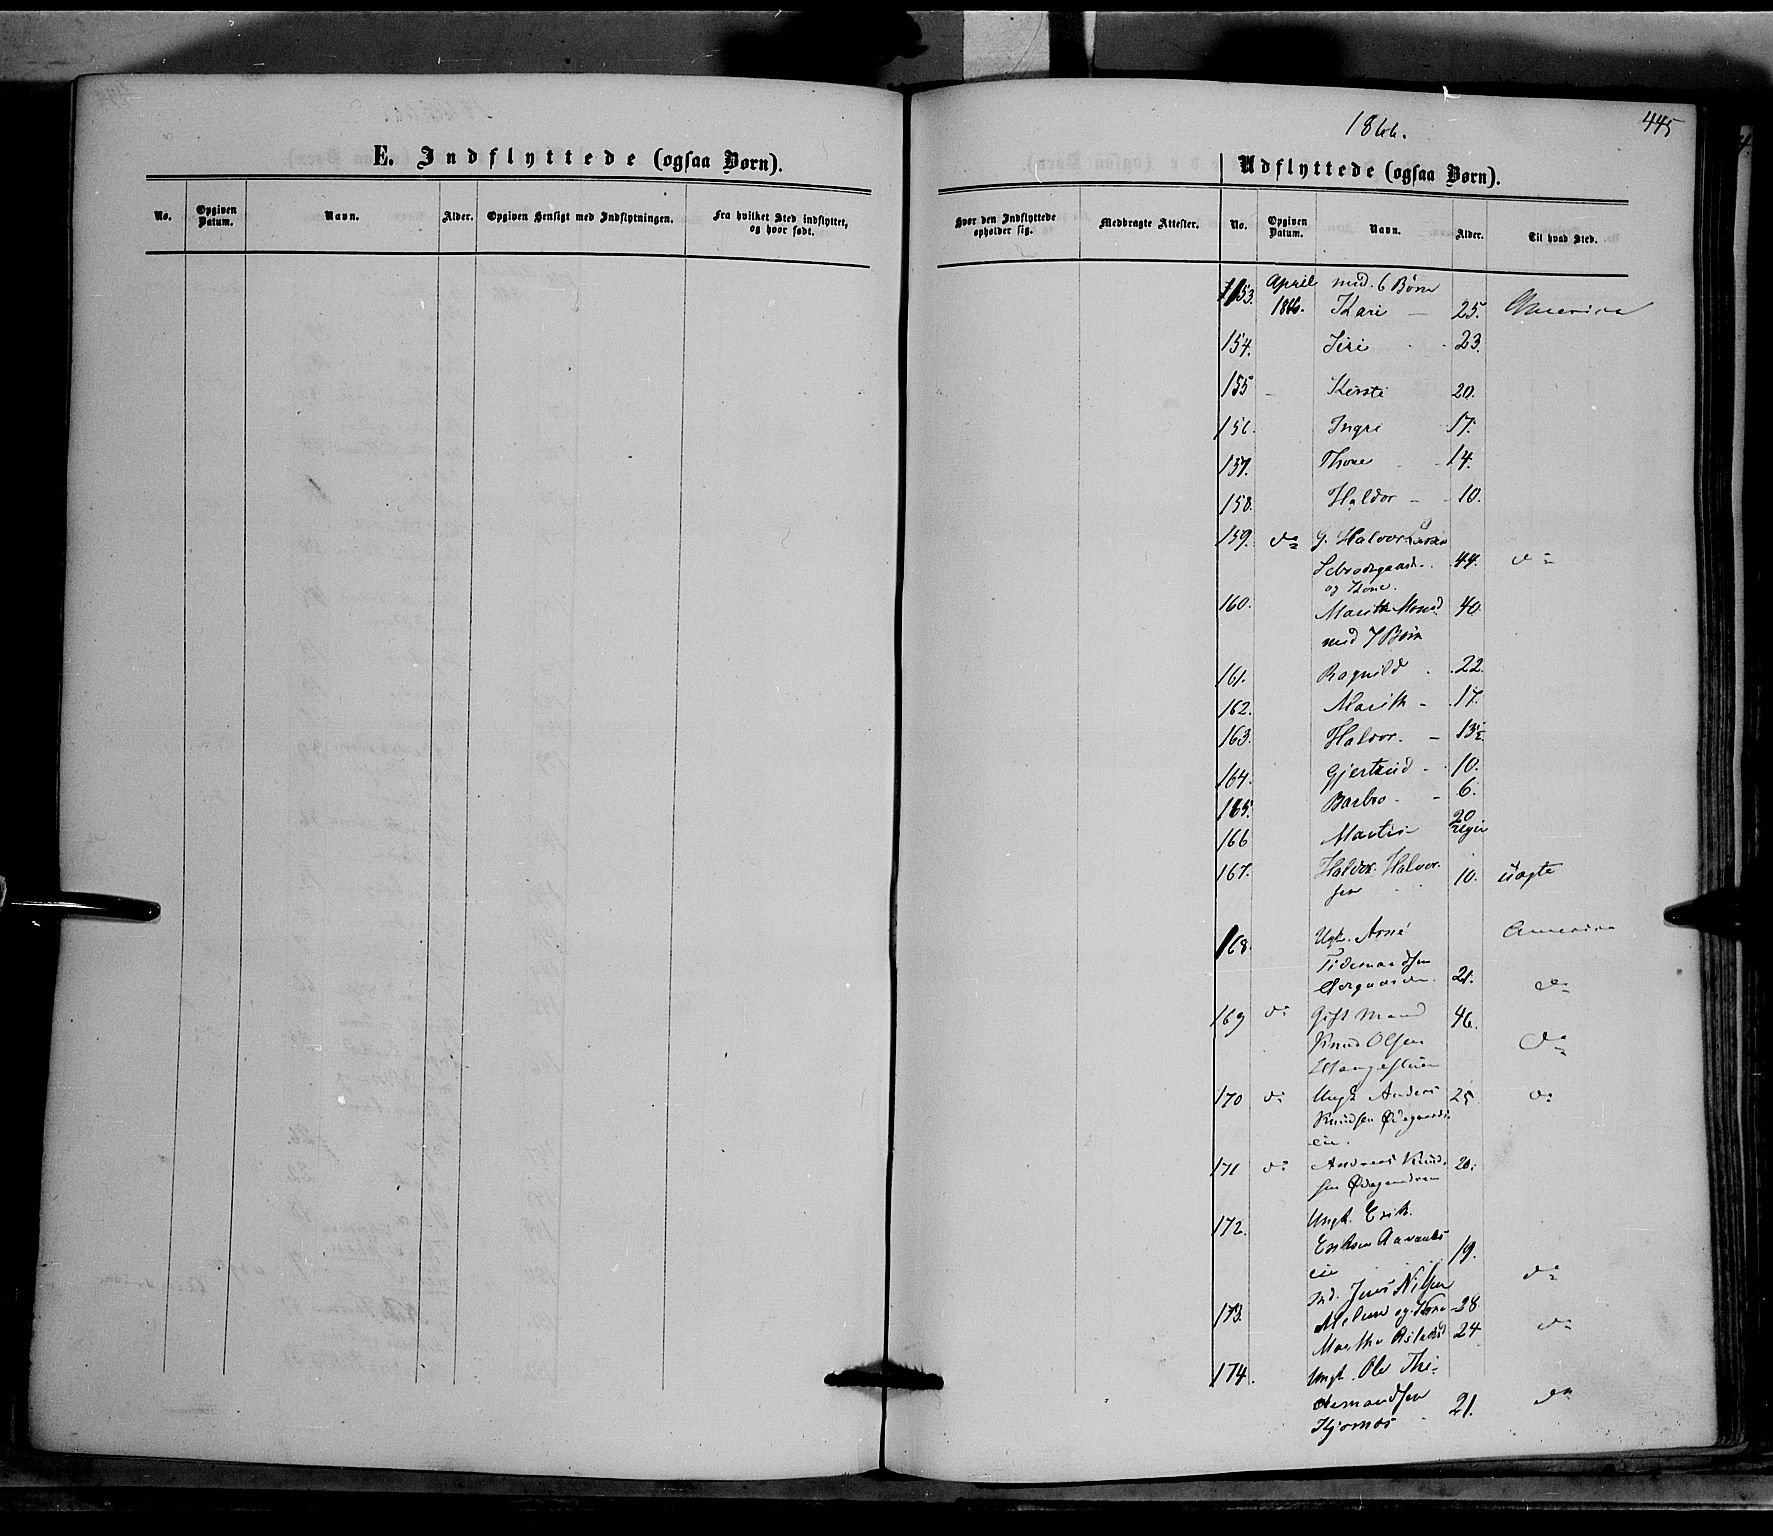 1866.
445
E. Indflyttede (ogsaa Børn).
Udflyttede (ogsaa Børn).
No. Opgiven Datum. Navn. Alder. Opgiven Hensigt med Indflytningen. Fra hvilket Sted indflyttet, og hvor født.
Hvor den Indflyttede opholder sig. Medbragte Attester. No. Opgiven Datum. Navn. Alder. Til hvad Sted.
April med 6 Børn
153. 1866. Kari — 25. America
154. Siri 23.
155 Kirsti 20.
156. Ingri 17.
157. Thone 14.
158. Haldor — 10.
159. do G. Halvor
44. do
og Kone.
160. Marith 40.
med 7 Børn
161. Ragnild 22.
162. Marith 17.
163. Haldor. — 13½
164. Gjertrud 10.
165. Barbro 6.
166 Martin 20 uger
167. Haldor Halvor-
sen 10. uægte
168. Ugk. Arne America
Tidemandsen
21. do
169 do Gift Mand 46.
Knud Olsen do
170 do Ungk Anders 25 do
Knudsen Ødegaards
eie.
171 do Andreas Knud- 20.
sen
172. Ungk. Erik
Eriksen
eie 19.
Jens Nilsen do
173. og Kone 28
Marthe 24 do
174. Ungk. Ole Thi-
demandsen 21. do